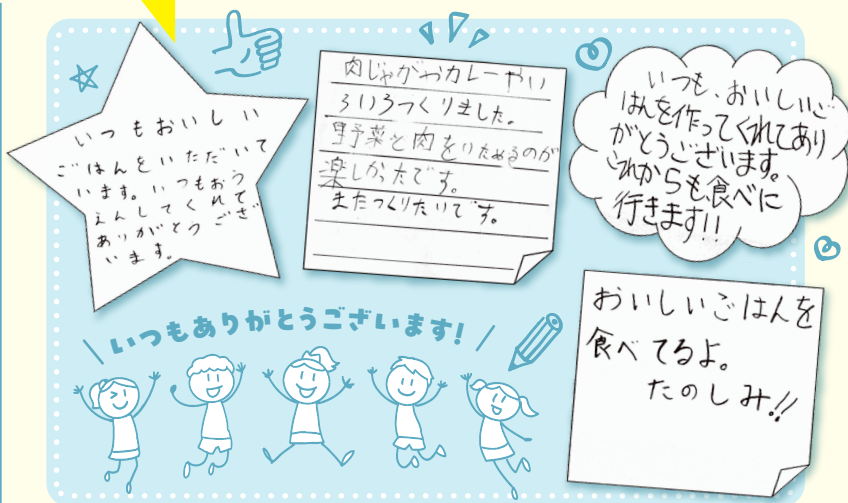 いつもおいしい
ごはんをいただいて
います。いつもおう
えんしてくれて
ありがとうござ
います。
肉じゃがやカレーやい
ろいろつくりました。
野菜と肉をいためるのが
楽しかったです。
またつくりたいです。
いつも、おいしいご
はんを作ってくれてあり
がとうございます。
これからも、食べに
行きます!!
いつもありがとうございます!
おいしいごはんを
食べてるよ。
たのしみ!!